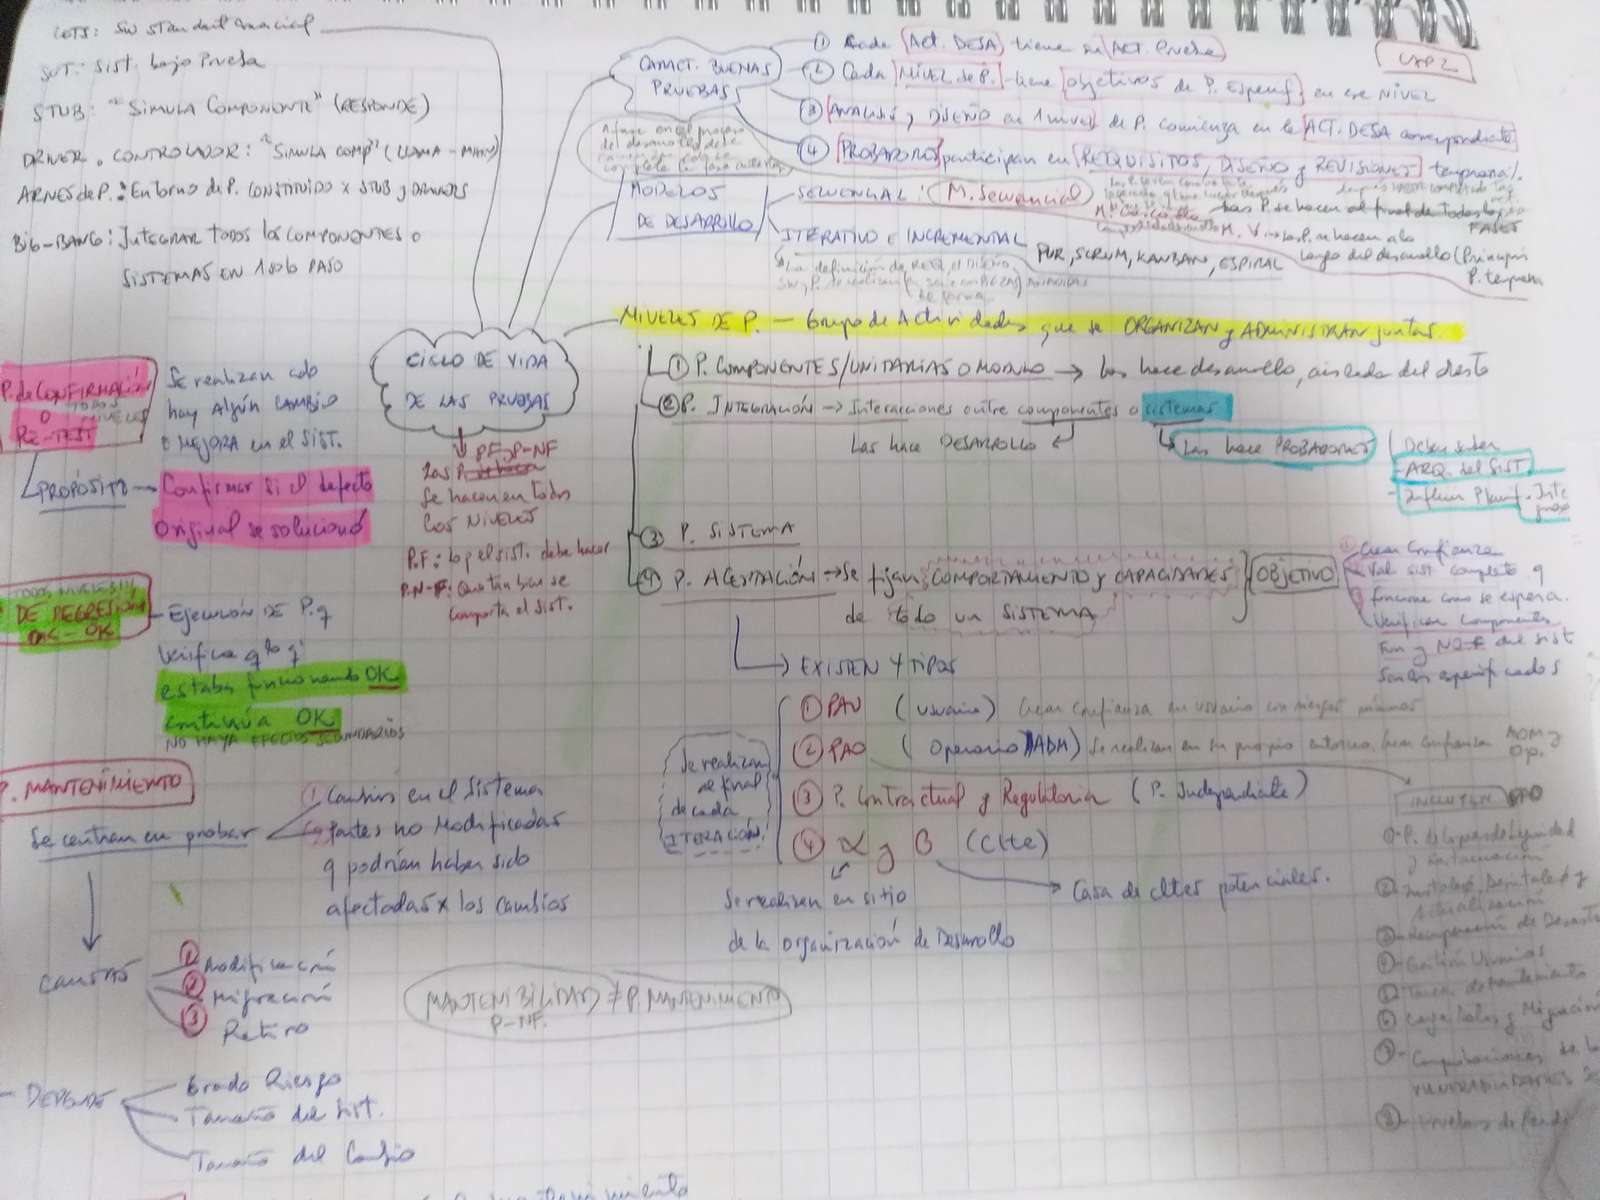 COTS: SW Standard Comercial
SUT: Sist. bajo Prueba
STUB: "Simula Componente" (RESPONDE)
DRIVER o CONTROLADOR: "Simula comp" (LLAMA-
ARNES de P.: Entorno de P. CONSTITUIDO x STUB y DRIVERS
BIG-BANG: Integrar todos los componentes o
SISTEMAS EN 1 solo PASO
CAP 2
CARACT. BUENAS
PRUEBAS
① Cada ACT. DESA tiene su ACT. Prueba
② Cada NIVEL de P. tiene objetivos de P. Especif en ese NIVEL
③ ANALISIS y DISEÑO en 1 nivel de P. comienza en la ACT. DESA correspondiente
④ PROBADORES participan en REQUISITOS, DISEÑO y REVISIONES
MODELOS
DE DESARROLLO
SECUENCIAL: M. Secuencial
Las P. se hacen al final de todas las
FASES
M. V → Las P. se hacen a lo
largo del desarrollo (Principio
P. temprana
ITERATIVO e INCREMENTAL
RUP, SCRUM, KANBAN, ESPIRAL
La definición de REQ, el DISEÑO,
CICLO DE VIDA
DE LAS PRUEBAS
NIVELES DE P. — Grupo de Actividades que se ORGANIZAN y ADMINISTRAN juntas.
① P. COMPONENTES/UNITARIAS O MODULO → Las hace desarrollo, aislada del resto
② P. INTEGRACIÓN → Interacciones entre componentes o sistemas
Las hace DESARROLLO
Las hace PROBADORES
Deben saber
- ARQ. del SIST.
- Influir Planif.
③ P. SISTEMA
④ P. ACEPTACIÓN → Se fijan COMPORTAMIENTO y CAPACIDADES
de todo un SISTEMA
OBJETIVO
Crear Confianza
Val sist completo q
funcione como se espera.
Verificar Componentes
Fun y NO-F del sist
sean especificados
PF y P-NF
Las P.
Se hacen en todos
los NIVELES
P.F: lo q el sist. debe hacer
P.N-F: Que tan bien se
comporta el sist.
P. de CONFIRMACIÓN
O
TODOS
NIVELES
RE-TEST
Se realizan cdo
hay Algún CAMBIO
o MEJORA en el Sist.
PROPÓSITO — Confirmar si el defecto
Original se solucionó
DE REGRESIÓN
OK - OK
Ejecución DE P. q
Verifica q lo q
estaba funcionando OK
continúa OK
NO HAYA EFECTOS SECUNDARIOS
P. MANTENIMIENTO
Se centran en probar
① Cambios en el Sistema
② Partes no Modificadas
q podrían haber sido
afectadas x los cambios
CAUSAS
① Modificación
② Migración
③ Retiro
- DEPENDE
Grado Riesgo
Tamaño del Sist.
Tamaño del Cambio
MANTENIBILIDAD ≠ P. MANTENIMIENTO
P-NF.
→ EXISTEN 4 TIPOS
Se realizan
al final
de cada
ITERACIÓN
① PAU (Usuario) Crear Confianza en usuario con riesgos mínimos
② PAO (Operario/ADM) Se realizan en su propio entorno, Crear Confianza ADM y
Op.
③ P. Contractual y Regulatoria (P. Independiente)
④ α y β (Clte)
Se realizan en sitio
de la organización de Desarrollo
Casa de cltes potenciales.
INCLUYEN
① P. de Copias de Seguridad
y Restauración
② Instalac, Desinstalac y
Actualización
③ Recuperación de Desastre
④ Gestión Usuarios
⑤ Tarea de Mantenimiento
⑥ Carga Datos y Migración
⑦ Comprobaciones de la
VULNERABILIDADES
⑧ Pruebas de Rendi